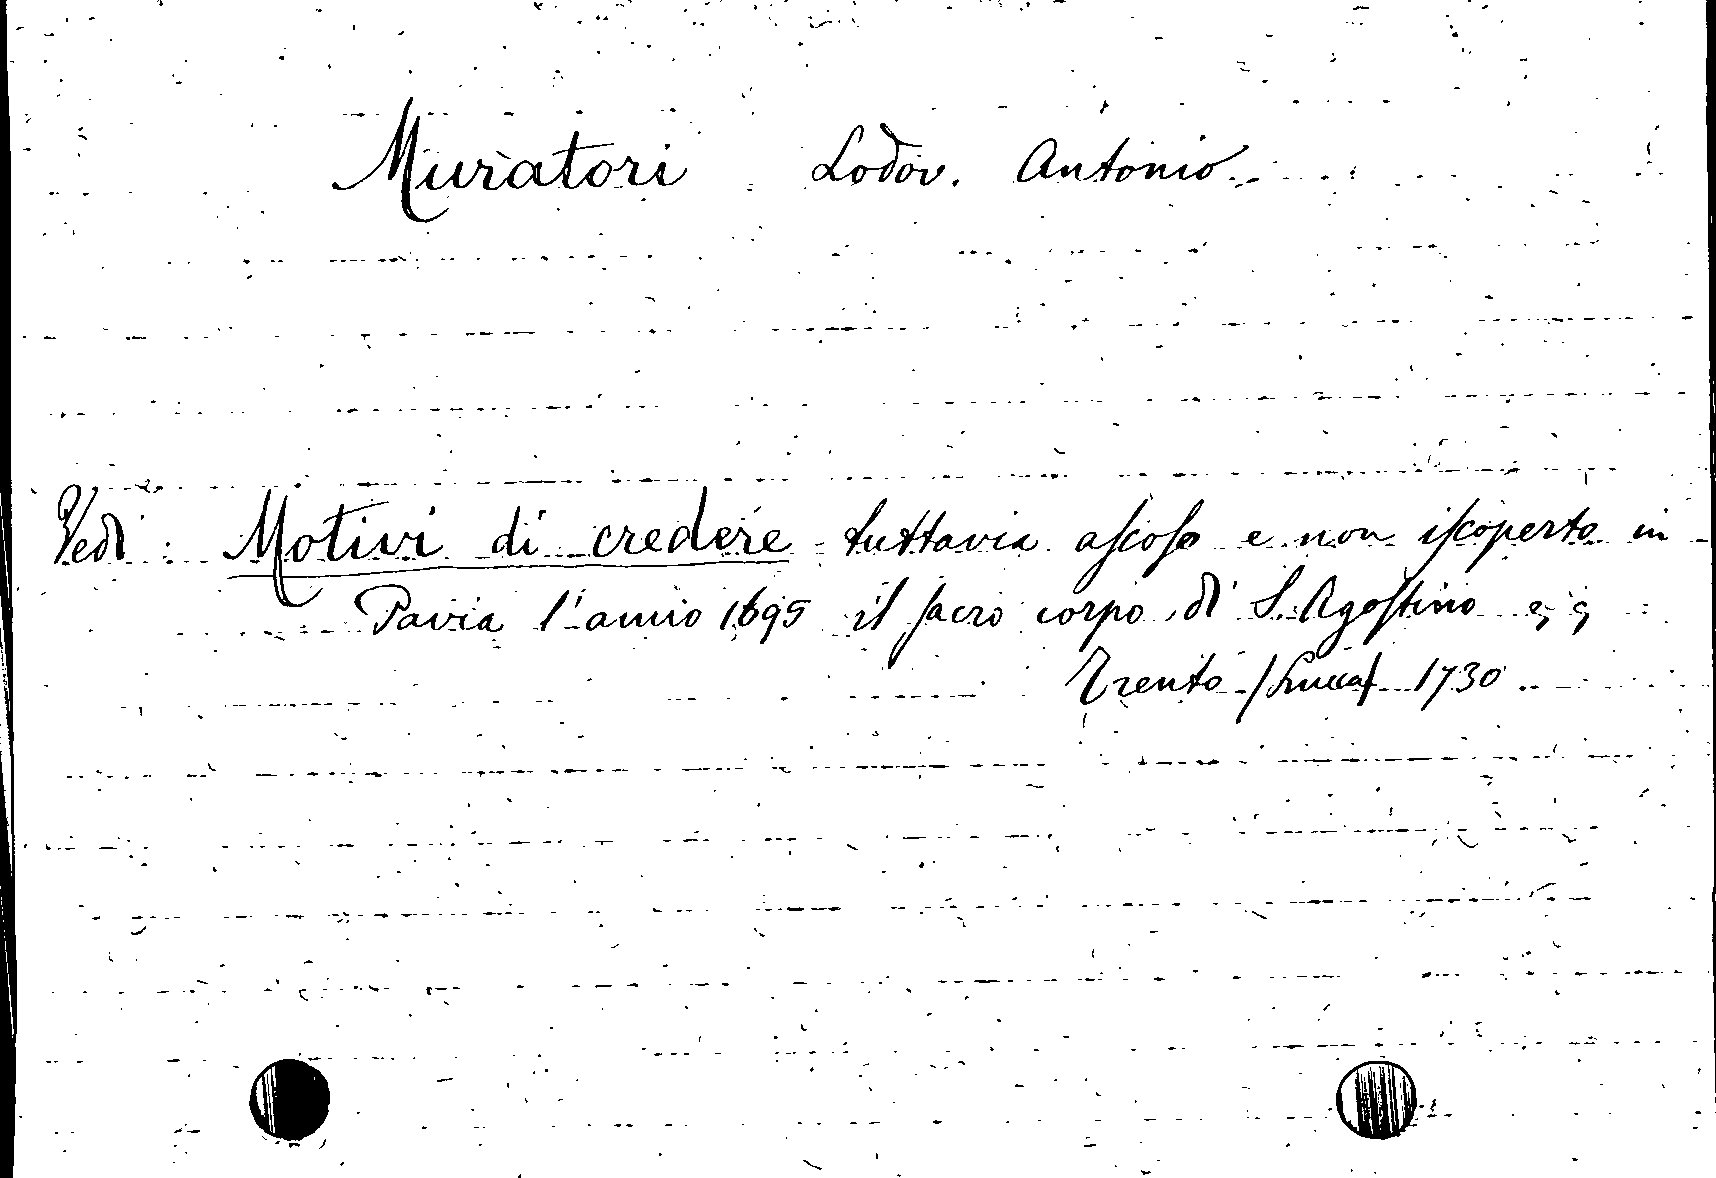 Muratori Lodov. Antonio
Vedi: Motivi di credere tuttavia ascoso e non iscoperto in
Pavia l'anno 1695 il sacro corpo di S. Agostino
Trento /Lucca/ 1730